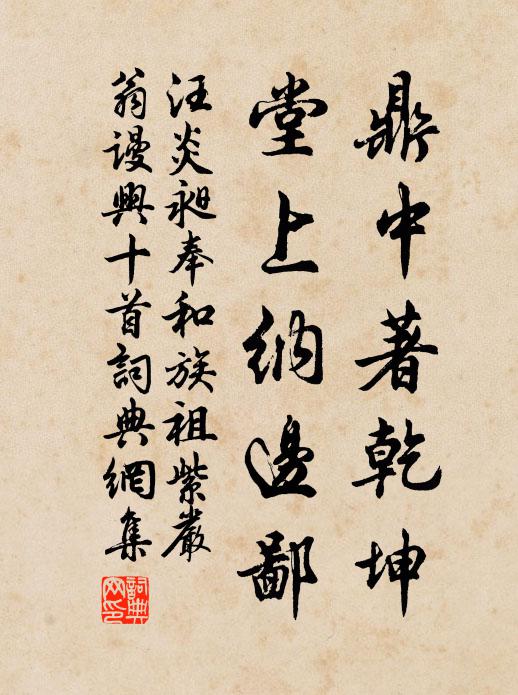 鼎中著乾坤
堂上納邊鄙
汪炎昶奉和族祖紫巖
翁謾興十首詞典網集
詞典網印